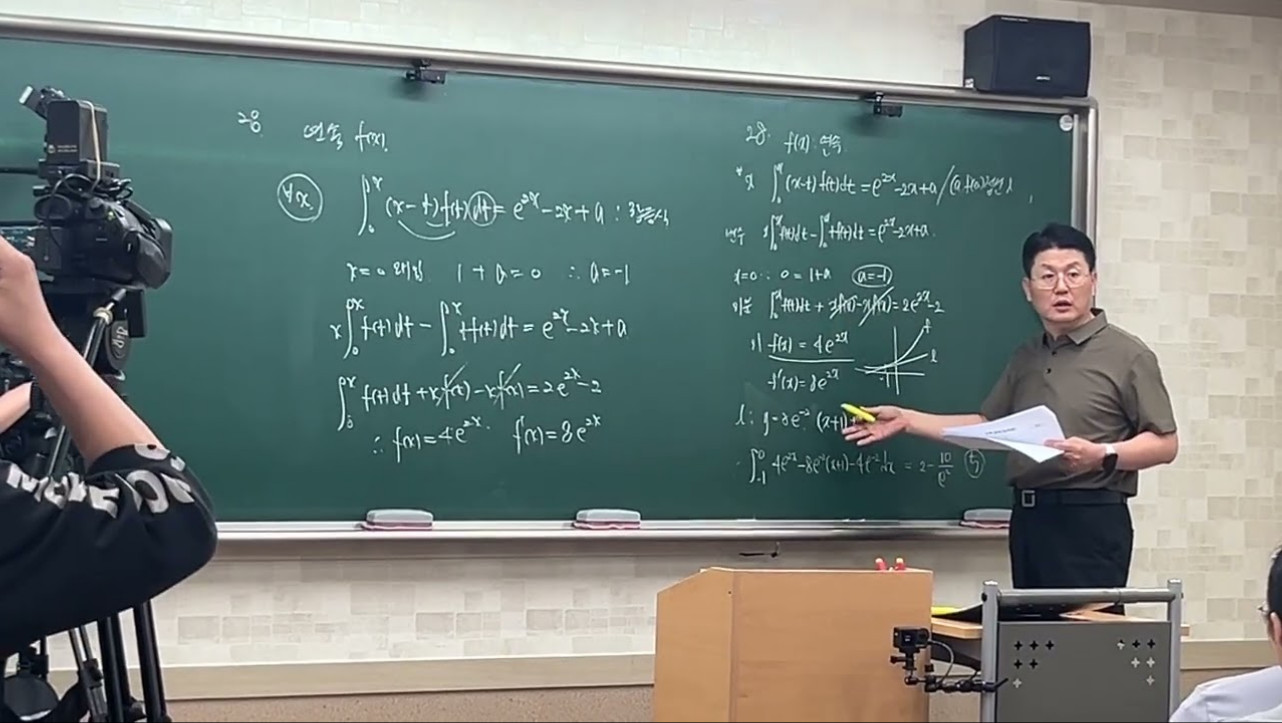 28. 연속 f(x).
∀x. ∫₀ˣ (x-t)f(t)dt = e^{2x}-2x+a : 항등식
x=0 대입 1+a=0 ∴ a=-1
x∫₀ˣ f(t)dt - ∫₀ˣ tf(t)dt = e^{2x}-2x+a
∫₀ˣ f(t)dt + xf(x) - xf(x) = 2e^{2x}-2
∴ f(x)=4e^{2x}. f'(x)=8e^{2x}
28. f(x) : 연속
∀x ∫₀ˣ (x-t)f(t)dt = e^{2x}-2x+a / (a f(a))
x∫₀ˣ f(t)dt - ∫₀ˣ tf(t)dt = e^{2x}-2x+a.
x=0 : 0=1+a a=-1
미분 ∫₀ˣ f(t)dt + xf(x) - xf(x) = 2e^{2x}-2
f(x)=4e^{2x}
f
l
-1
f'(x)=8e^{2x}
l : y=8e^{-2}(x+1)+
∫₋₁⁰ 4e^{2x}-8e^{-2}(x+1)-4e^{-2}dx = 2-10/e² ⑤